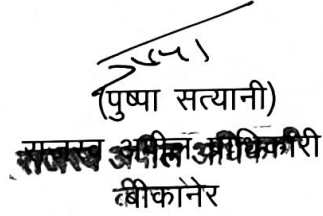 (पुष्पा सत्यानी)
राजस्व अपील अधिकारी
बीकानेर